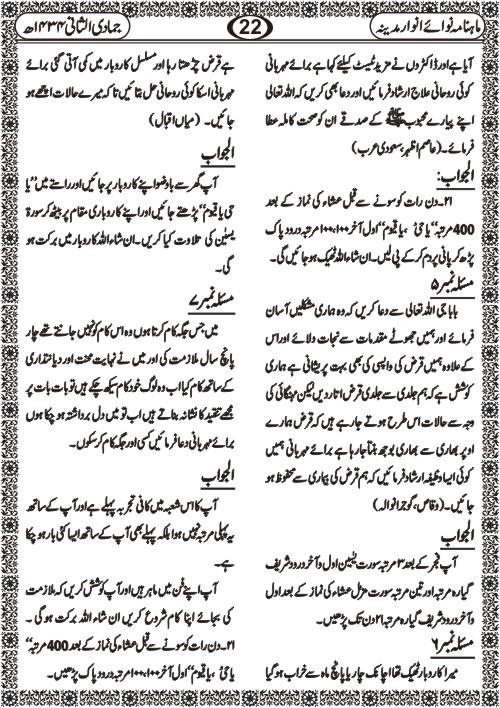 ماہنامہ نوائے انوار مدینہ
22
جمادی الثانی ۱۴۳۴ھ
آیا ہے اور ڈاکٹروں نے مزید ٹیسٹ کیلئے کہا ہے برائے مہربانی
کوئی روحانی علاج ارشاد فرمائیں اور دعا بھی کریں کہ اللہ تعالیٰ
اپنے پیارے محبوب ﷺ کے صدقے ان کو صحت کاملہ عطا
فرمائے۔ (عاصم اظہر، سعودی عرب)
الجواب:
۲۱۔ دن رات کو سونے سے قبل عشاء کی نماز کے بعد
400 مرتبہ "یا حیُّ ، یا قیوم" اول آخر ۱۰۰،۱۰۰ مرتبہ درود پاک
پڑھ کر پانی پر دم کر کے پی لیں۔ ان شاء اللہ ٹھیک ہو جائیں گی۔
مسئلہ نمبر ۵
بابا جی اللہ تعالیٰ سے دعا کریں کہ وہ ہماری مشکلیں آسان
فرمائے اور ہمیں جھوٹے مقدمات سے نجات دلائے اور اس
کے علاوہ ہمیں قرض کی واپسی کی بھی بہت پریشانی ہے ہماری
کوشش ہے کہ ہم جلد سے جلدی قرض اتار دیں لیکن مہنگائی کی
وجہ سے حالات اس طرح ہوتے جا رہے ہیں کہ قرض ہمارے
اوپر بھاری سے بھاری بوجھ بنتا جا رہا ہے برائے مہربانی ہمیں
کوئی ایسا وظیفہ ارشاد فرمائیں کہ ہم قرض کی بیماری سے محفوظ ہو
جائیں۔ (وقاص، گوجرانوالہ)
الجواب
آپ فجر کے بعد ۳ مرتبہ سورت یٰسین اول و آخر درود شریف
گیارہ مرتبہ اور تین مرتبہ سورت مزمل عشاء کی نماز کے بعد اول
و آخر درود شریف گیارہ مرتبہ ۲۱ دن تک پڑھیں۔
مسئلہ نمبر ۶
میرا کاروبار ٹھیک تھا اچانک چار یا پانچ ماہ سے خراب ہو گیا
ہے قرض چڑھتا رہا اور مسلسل کاروبار میں کمی آتی گئی برائے
مہربانی اسکا کوئی روحانی حل بتائیں تاکہ میرے حالات اچھے ہو
جائیں۔ (میاں اقبال)
الجواب
آپ گھر سے باوضو اپنے کاروبار پر جائیں اور راستے میں "یا
حی یا قیوم" پڑھتے جائیں اور اپنے کاروباری مقام پر بیٹھ کر سورۃ
یٰسین کی تلاوت کیا کریں۔ ان شاء اللہ کاروبار میں برکت ہو
گی۔
مسئلہ نمبر ۷
میں جس جگہ کام کرتا ہوں وہ اس کام کو نہیں جانتے تھے چار
پانچ سال ملازمت کی اور میں نے نہایت محنت اور دیانتداری
کے ساتھ کام کیا اب وہ لوگ خود کام سیکھ چکے ہیں تو بات بات پر
مجھے تنقید کا نشانہ بناتے ہیں اب تو میں دل برداشتہ ہو چکا ہوں
برائے مہربانی دعا فرمائیں کسی اور جگہ کام کر سکوں۔
الجواب
آپ کا اس شعبہ میں کافی تجربہ پہلے ہے اور آپ کے ساتھ
یہ پہلی مرتبہ نہیں ہوا بلکہ پہلے بھی آپ کے ساتھ ایسا کئی بار ہو چکا
ہے۔
آپ اپنے فن میں ماہر ہیں اور آپ کوشش کریں کہ ملازمت
کی بجائے اپنا کام شروع کریں ان شاء اللہ برکت ہو گی۔
۲۱۔ دن رات کو سونے سے قبل عشاء کی نماز کے بعد 400 مرتبہ "
یا حیُّ ، یا قیوم" اول آخر ۱۰۰،۱۰۰ مرتبہ درود پاک پڑھیں۔